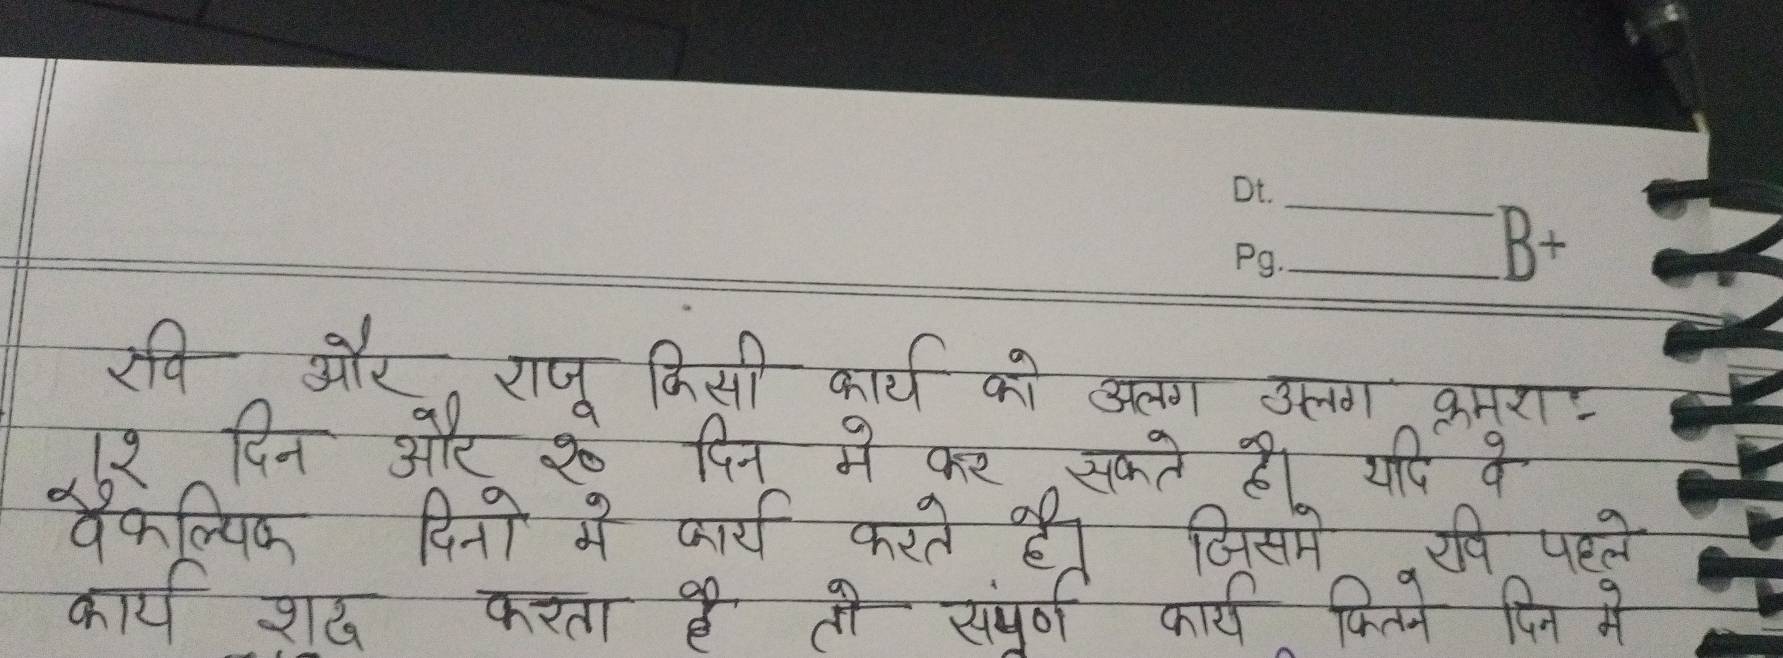 Dt.
Pg.
B+
रवि और राजू किसी कार्य को अलग अलग क्रमशः
12 दिन और 20 दिन मे कर सकते है। यदि वे
वैकल्पिक दिनो मे कार्य करते है। जिसमे रवि पहले
कार्य शुरू करता है तो संपूर्ण कार्य कितने दिन मे